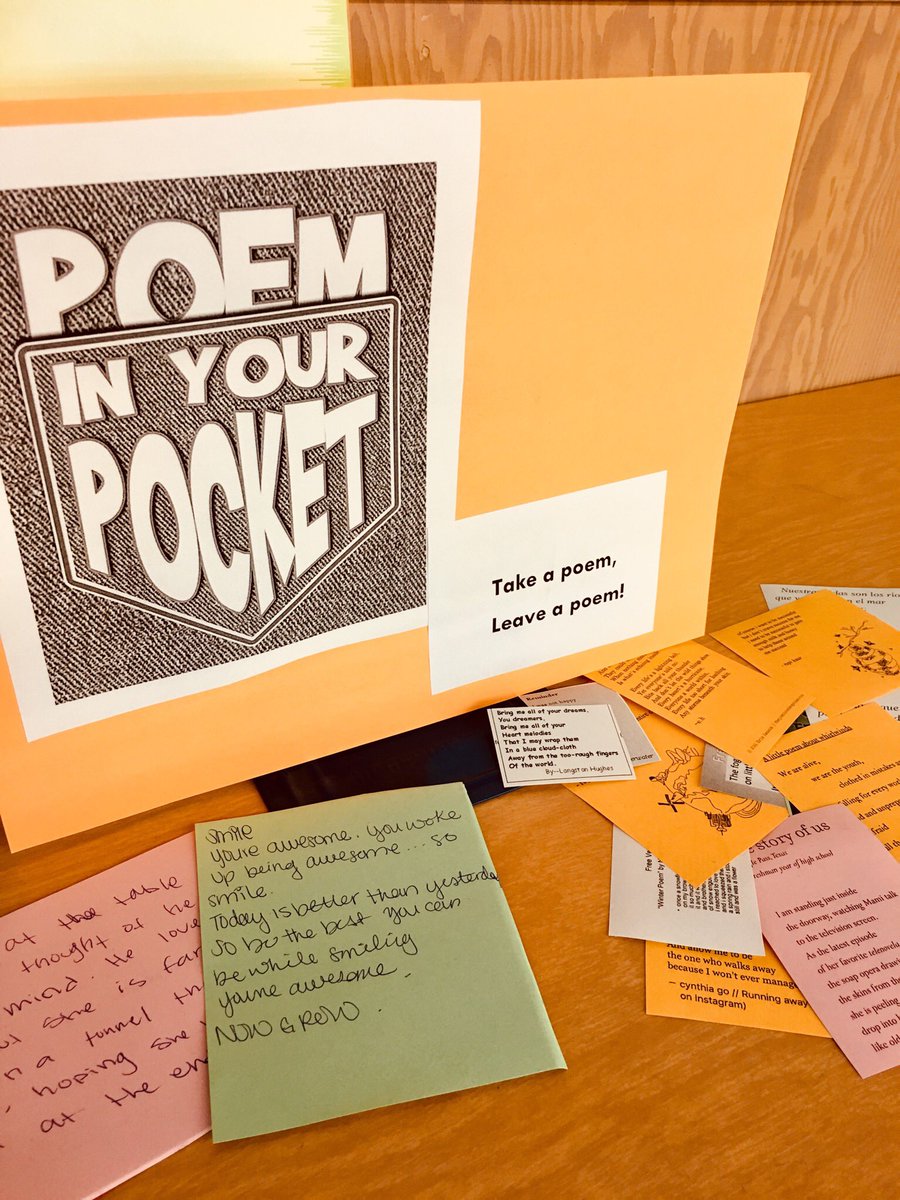 POEM
IN YOUR
POCKET
Take a poem,
Leave a poem!
Bring me all of your dreams,
You dreamers,
Bring me all of your
Heart melodies
That I may wrap them
In a blue cloud-cloth
Away from the too-rough fingers
Of the world.
By--Langston Hughes
smile
you're awesome. you woke
up being awesome... so
smile.
Today is better than yesterday
so be the best you can
be while smiling
you're awesome.
NOW GROW.
at the table
thought of he
mind. He love
she is far
n a tunnel th
hoping she
at the en
Reminder
happy
Nuestras son los
que en el mar
A little poem about whirlwinds
We are alive,
we are the youth,
clothed in mistakes a
lling for every wo
and unprep
fraid
The fog
on litt
Free Ve
"Winter Poem" by
once a snow
And allow me to be
the one who walks away
because I won't ever manag
— cynthia go // Running away
on Instagram)
e story of us
le Paso, Texas
eshman year of high school
I am standing just inside
the doorway, watching Mami talk
to the television screen.
As the latest episode
of her favorite telenovela
the soap opera drawi
the skins from the
she is peeling
drop into
like old